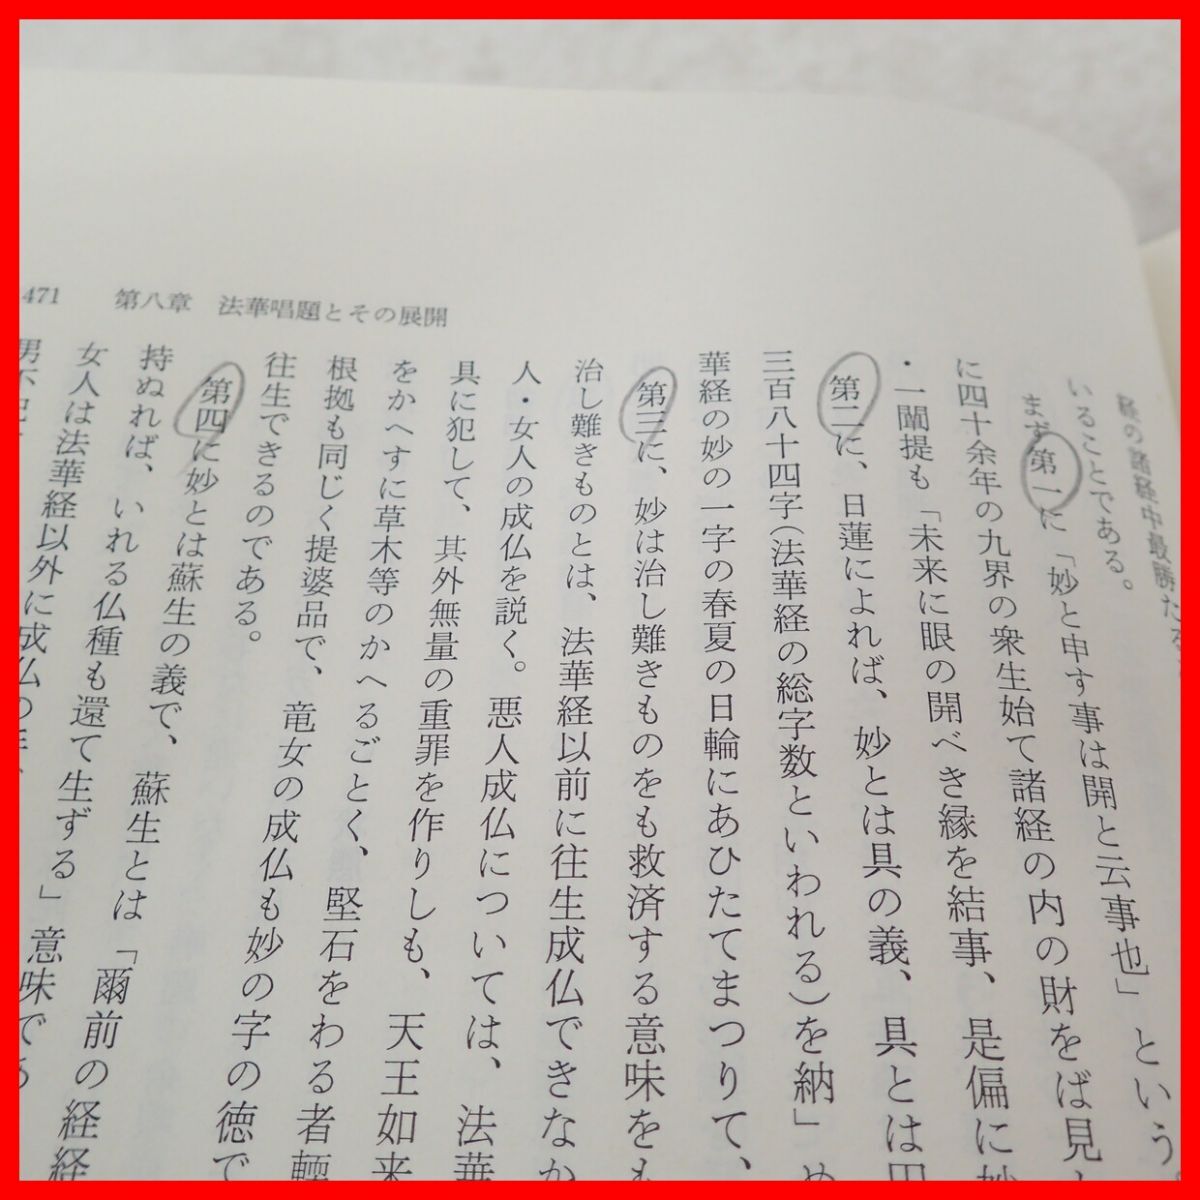 471 第八章 法華唱題とその展開
経の諸経中最勝たる
いることである。
まず第一に「妙と申す事は開と云事也」という
に四十余年の九界の衆生始て諸経の内の財をば見
・一闡提も「未来に眼の開べき縁を結事、是偏に妙
第二に、日蓮によれば、妙とは具の義、具とは円
三百八十四字(法華経の総字数といわれる)を納」め
華経の妙の一字の春夏の日輪にあひたてまつりて、
第三に、妙は治し難きものをも救済する意味をも
治し難きものとは、法華経以前に往生成仏できなか
人・女人の成仏を説く。悪人成仏については、法華
具に犯して、其外無量の重罪を作りしも、天王如来
をかへすに草木等のかへるごとく、堅石をわる者輭
根拠も同じく提婆品で、竜女の成仏も妙の字の徳で
往生できるのである。
第四に妙とは蘇生の義で、蘇生とは「爾前の経経
持ぬれば、いれる仏種も還て生ずる」意味である
女人は法華経以外に成仏の